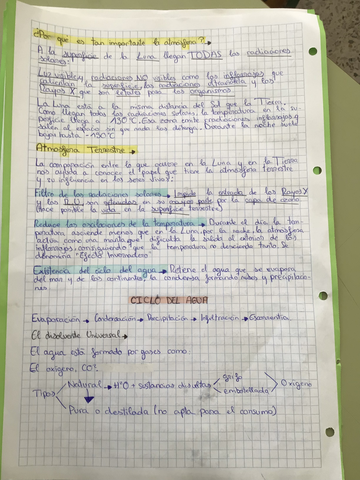 ¿Por qué es tan importante la atmósfera?
A la superficie de la Luna llegan TODAS las radiaciones
solares:
Luz visible y radiaciones NO visible como los infrarrojos que
calientan la superficie, las radiaciones ultravioleta y los
Rayos X que son letales para los organismos.
La Luna está a la misma distancia del Sol que la Tierra.
Como llegan todas las radiaciones solares, la temperatura en su
superficie llega a 130°C. Esto como produciones infrarrojos y
salen al espacio sin que nada los detenga. Durante la noche suele
bajar hasta -150°C
Atmósfera Terrestre
La comparación entre lo que ocurre en la Luna y en la Tierra
nos ayuda a conocer el papel que tiene la atmósfera terrestre
y su influencia en los seres vivos:
Filtro de las radiaciones solares Impide la entrada de los Rayos X
y los R.U son retenidos en su mayor parte por la capa de ozono
(hace posible la vida en la superficie terrestre)
Reduce las oscilaciones de la temperatura Durante el día la tem-
peratura asciende menos que en la Luna por la noche la atmósfera
actúa como una manta que dificulta la salida al exterior de los
infrarrojos consiguiendo que la temperatura no descienda tanto. Se
denomina "Efecto Invernadero"
Existencia del ciclo del agua Retiene el agua que se evapora
del mar y de los continentes la condensa, formando nubes y precipitacio-
nes
CICLO DEL AGUA
Evaporación Condensación Precipitación Infiltración Escorrentía
El disolvente Universal
El agua está formada por gases como:
El oxígeno, CO²
Tipos
Natural H²O + sustancias disueltas
grifo
embotellada
Origen
Pura o destilada (no apta para el consumo)